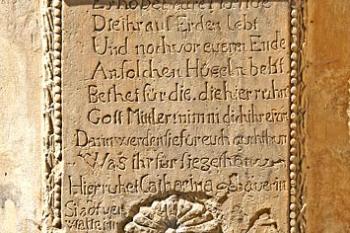 Die ihr auf Erden lebt
Und noch vor eurem Ende
An solchen Hügeln bebt
Bethet für die, die hier ruhn
Gott Mittler nimm dich ihrer an
Dann werden sie für euch auch thun
Was ihr für sie gethan
Hier ruhet Catharina
Stadtver